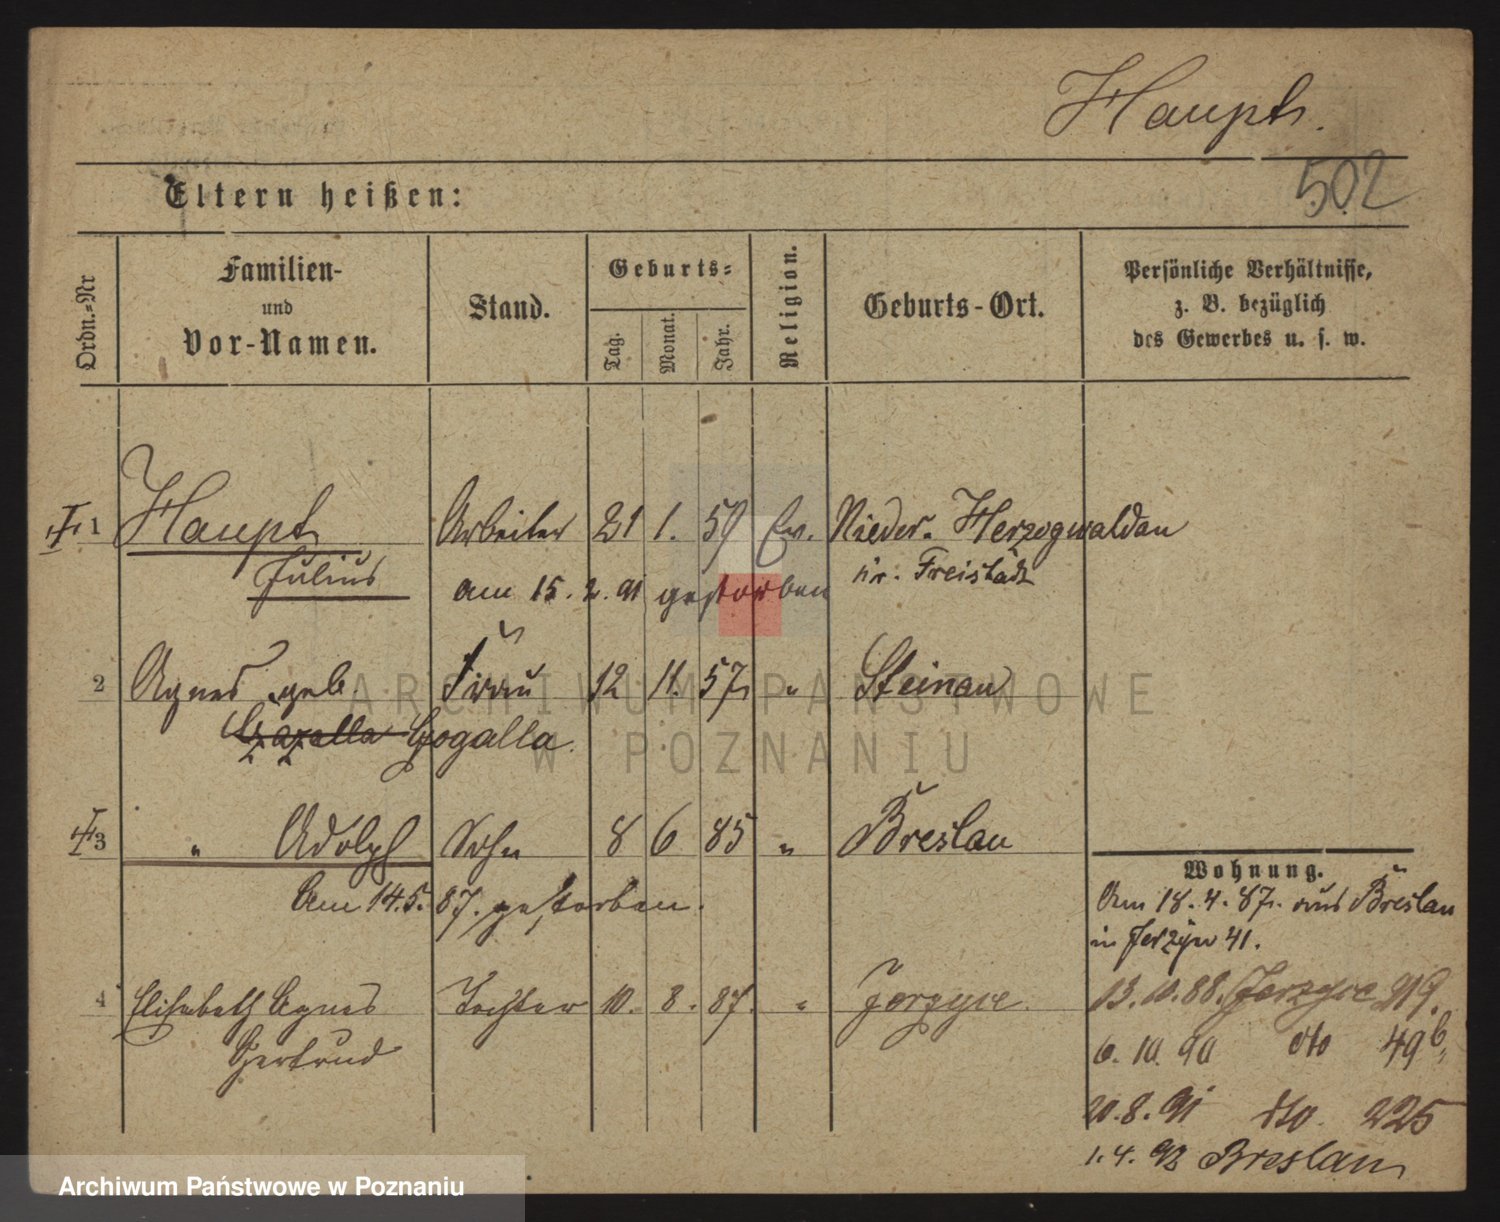 Haupt.
502
Eltern heißen:
Ordn.-Nr
Familien-
und
Vor-Namen.
Stand.
Geburts-
Tag.
Monat.
Jahr.
Religion.
Geburts-Ort.
Persönliche Verhältnisse,
z. B. bezüglich
des Gewerbes u. s. w.
1 Haupt Arbeiter 21 1. 59 Ev. Nieder-Herzogwaldau
Julius am 15. 2. 91 gestorben Kr. Freistadt
2 Agnes geb. Frau 12 11. 57 " Steinau
Gogalla.
ARCHIWUM PAŃSTWOWE
W POZNANIU
3 " Adolph Sohn 8 6 85 " Breslau
Am 14.5. 87. gestorben.
Wohnung.
Am 18. 4. 87. aus Breslau
in Jerzyce 41.
4 Elisabeth Agnes Tochter 10. 8. 87. " Jerzyce.
Gertrud
13. 10. 88. Jerzyce 219.
6. 10. 90 dto 49b,
20. 8. 91 dto. 225
1. 4. 92 Breslau
Archiwum Państwowe w Poznaniu